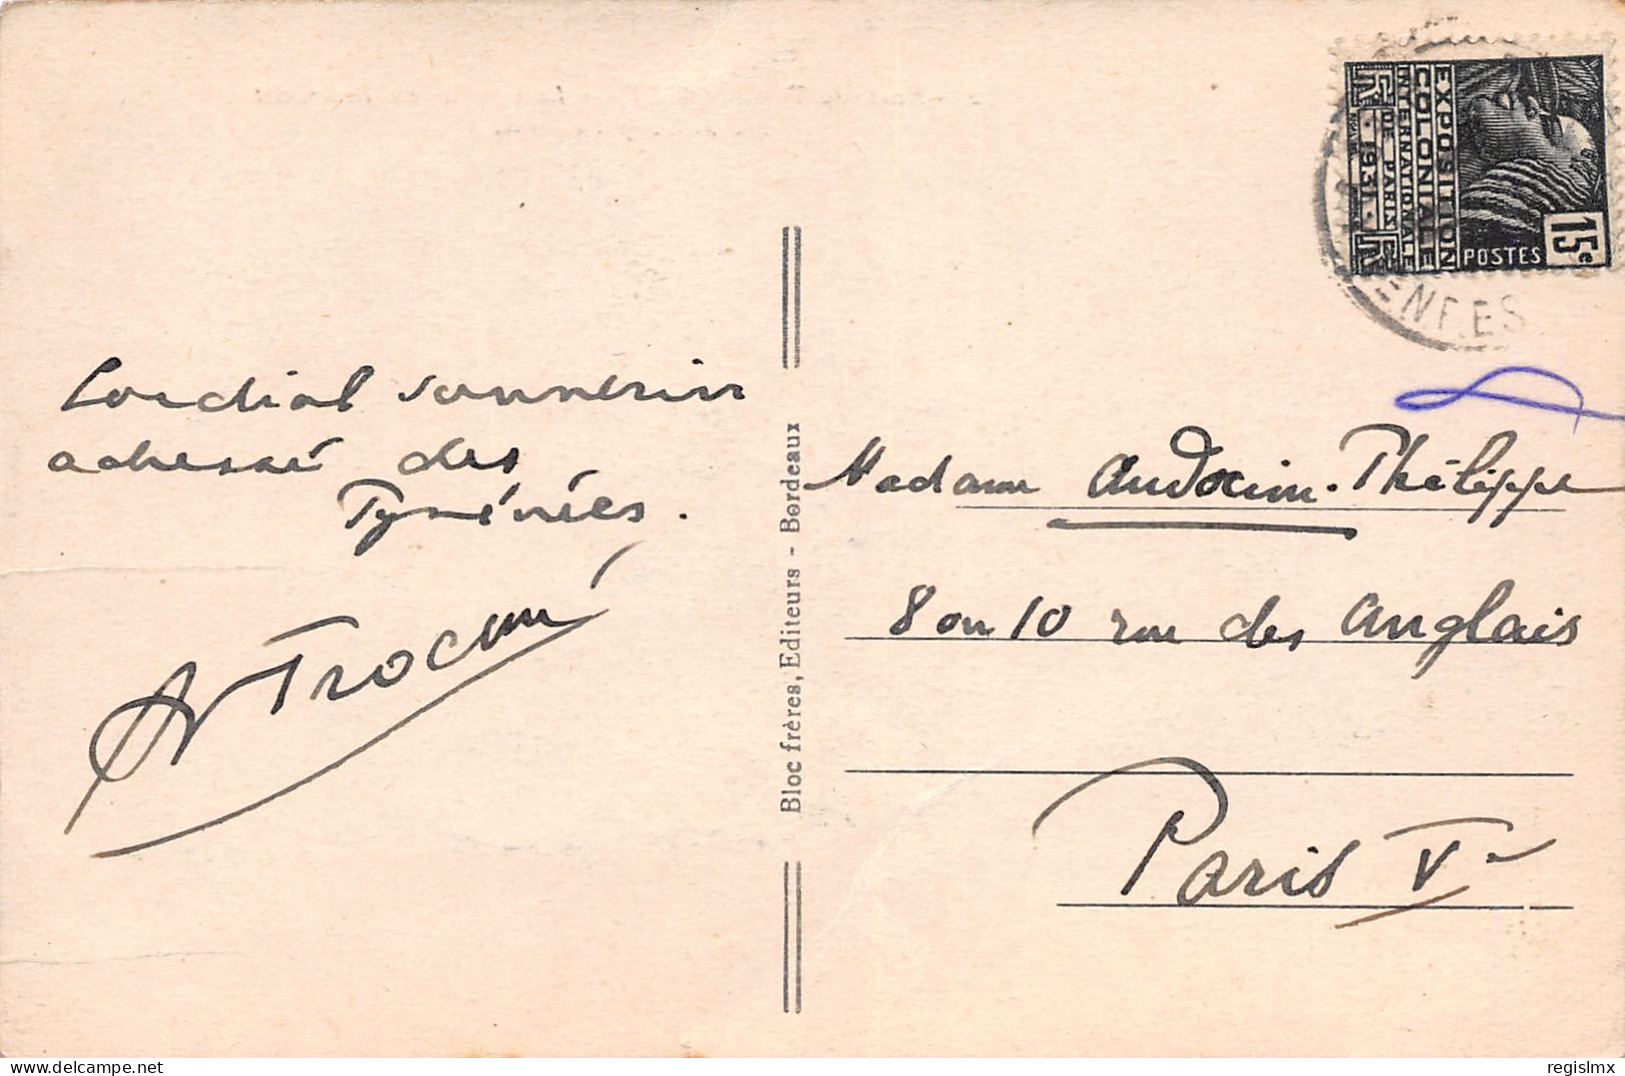 Cordial souvenir
adressé des
Pyrénées.
Bloc frères, Editeurs - Bordeaux
EXPOSITION
COLONIALE
INTERNATIONALE
DE PARIS
1931
POSTES
15c
Madame Audoin-Philippe
8 ou 10 rue des Anglais
Paris V
regislmx